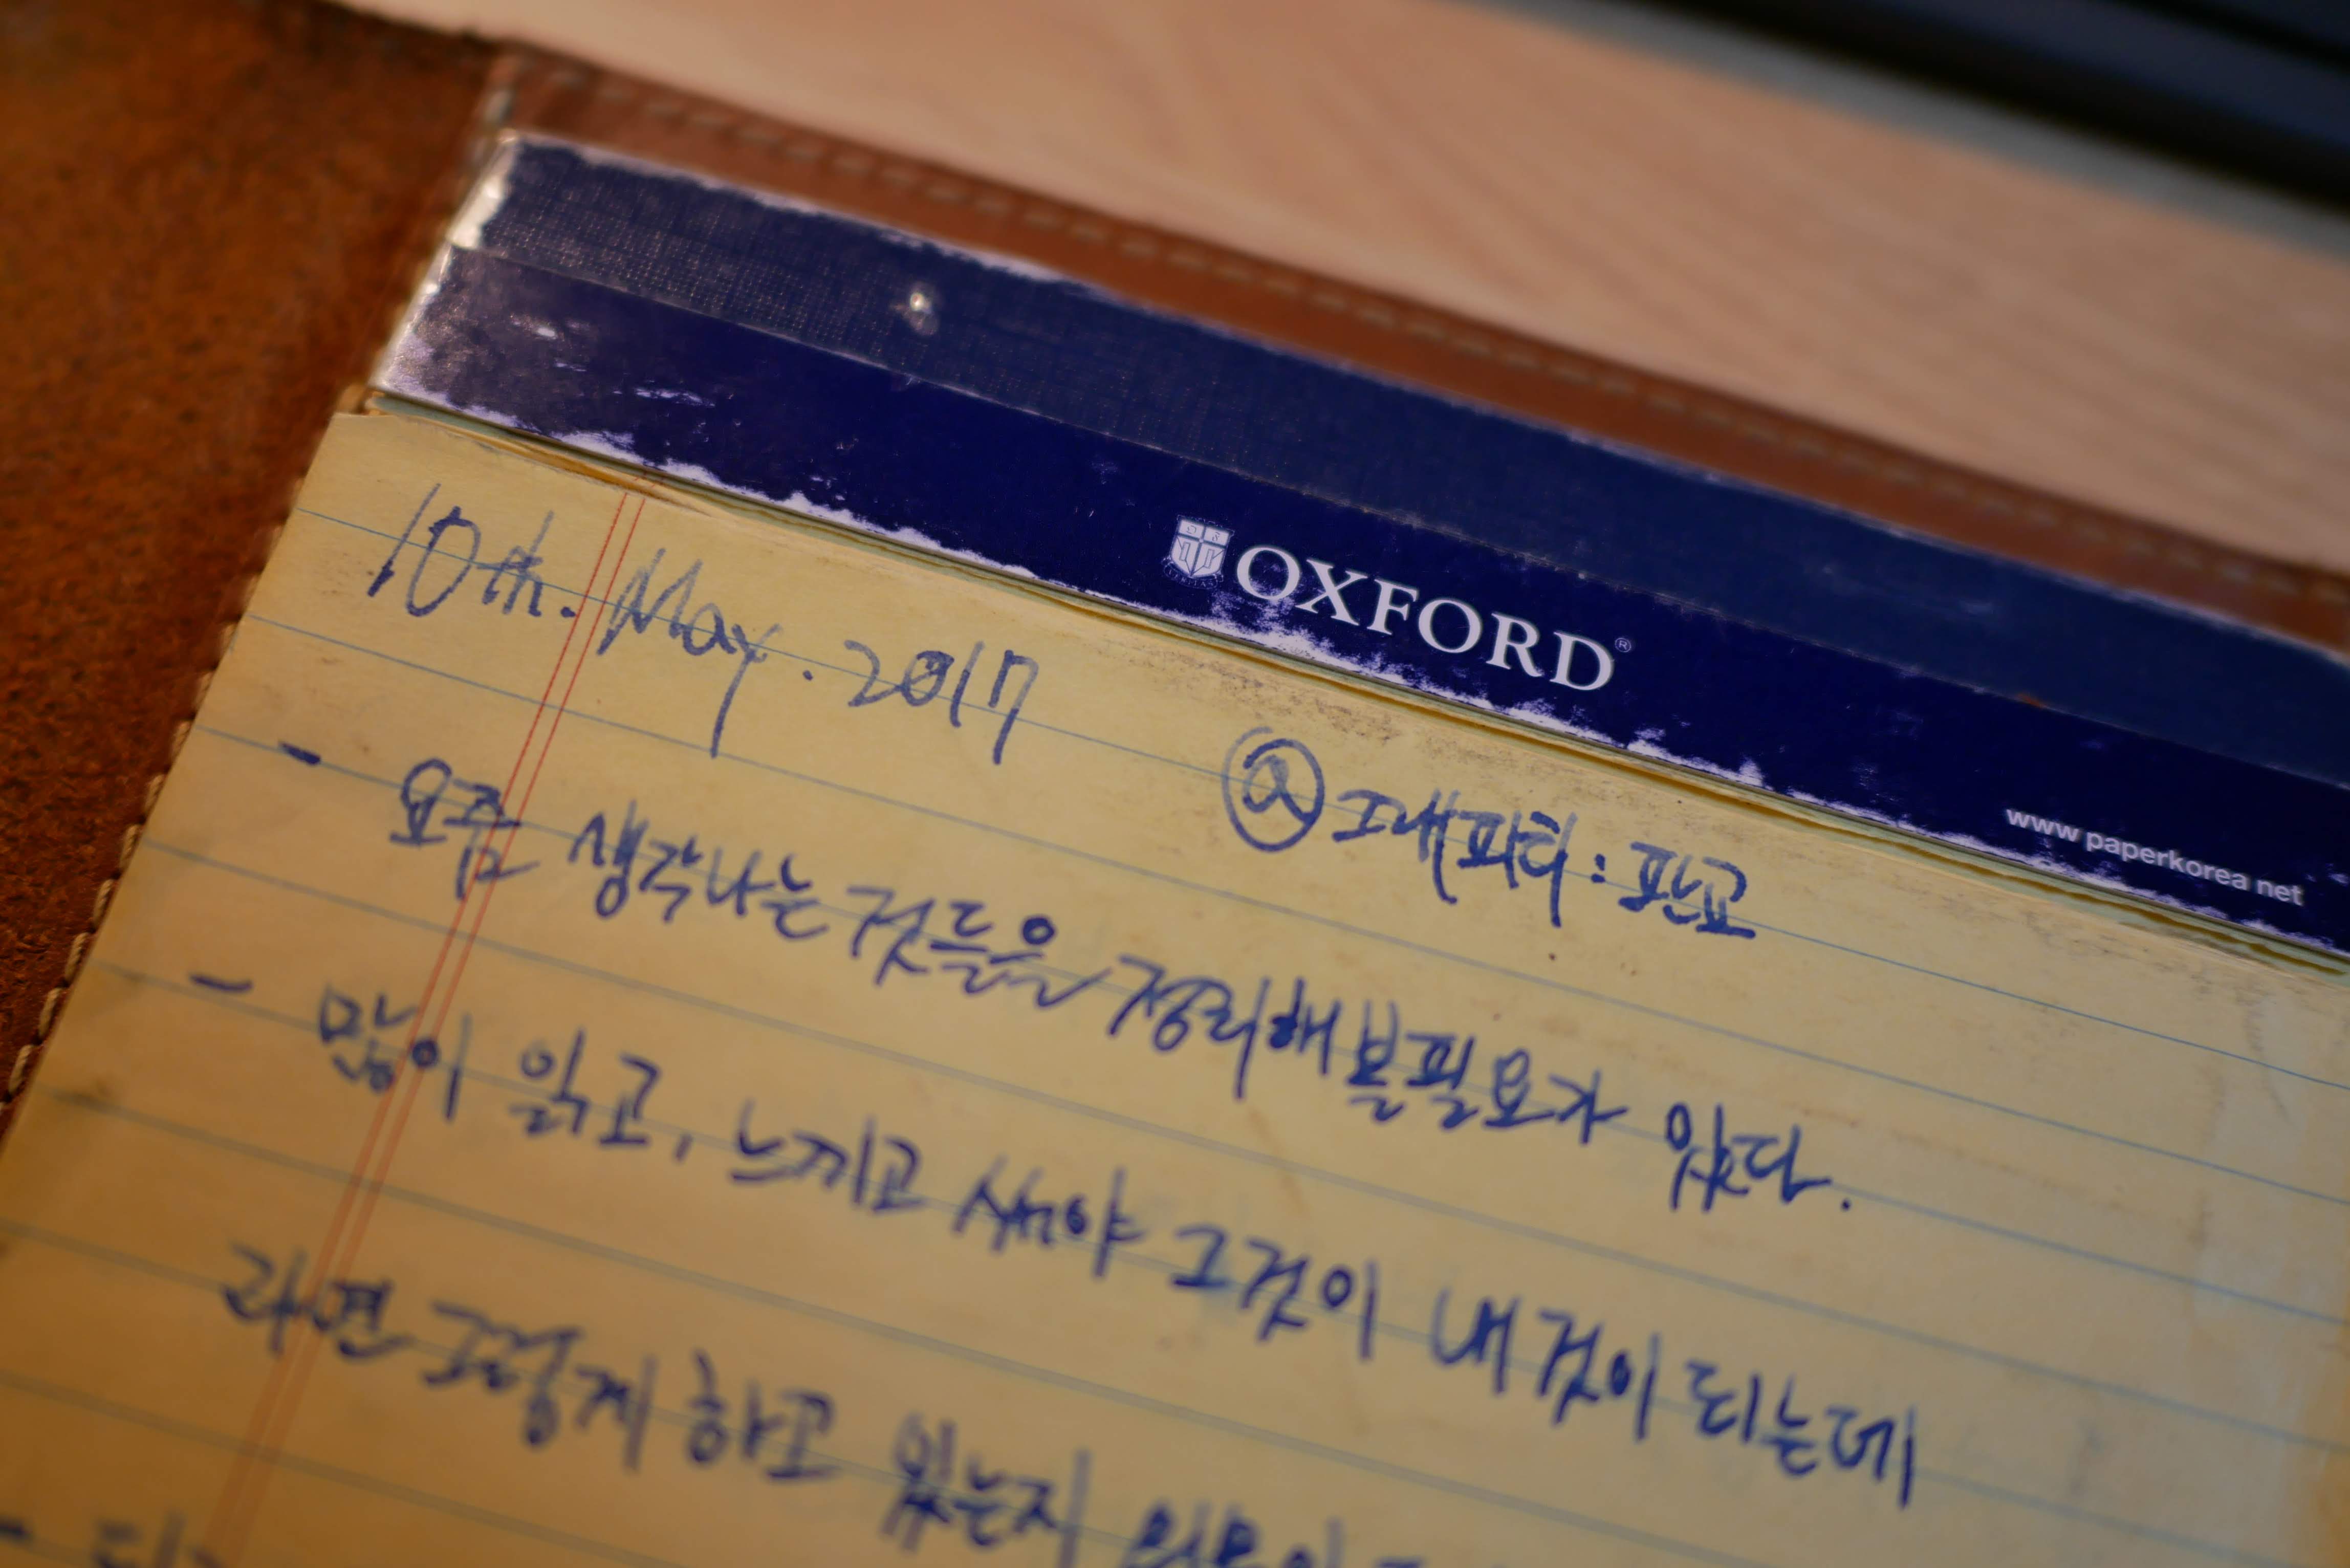 OXFORD®
www.paperkorea.net
10th. May. 2017
@그래피티:판교
- 요즘 생각나는 것들을 정리해볼필요가 있다.
- 많이 읽고, 느끼고 써야 그것이 내것이 되는데
과연 그렇게 하고 있는지